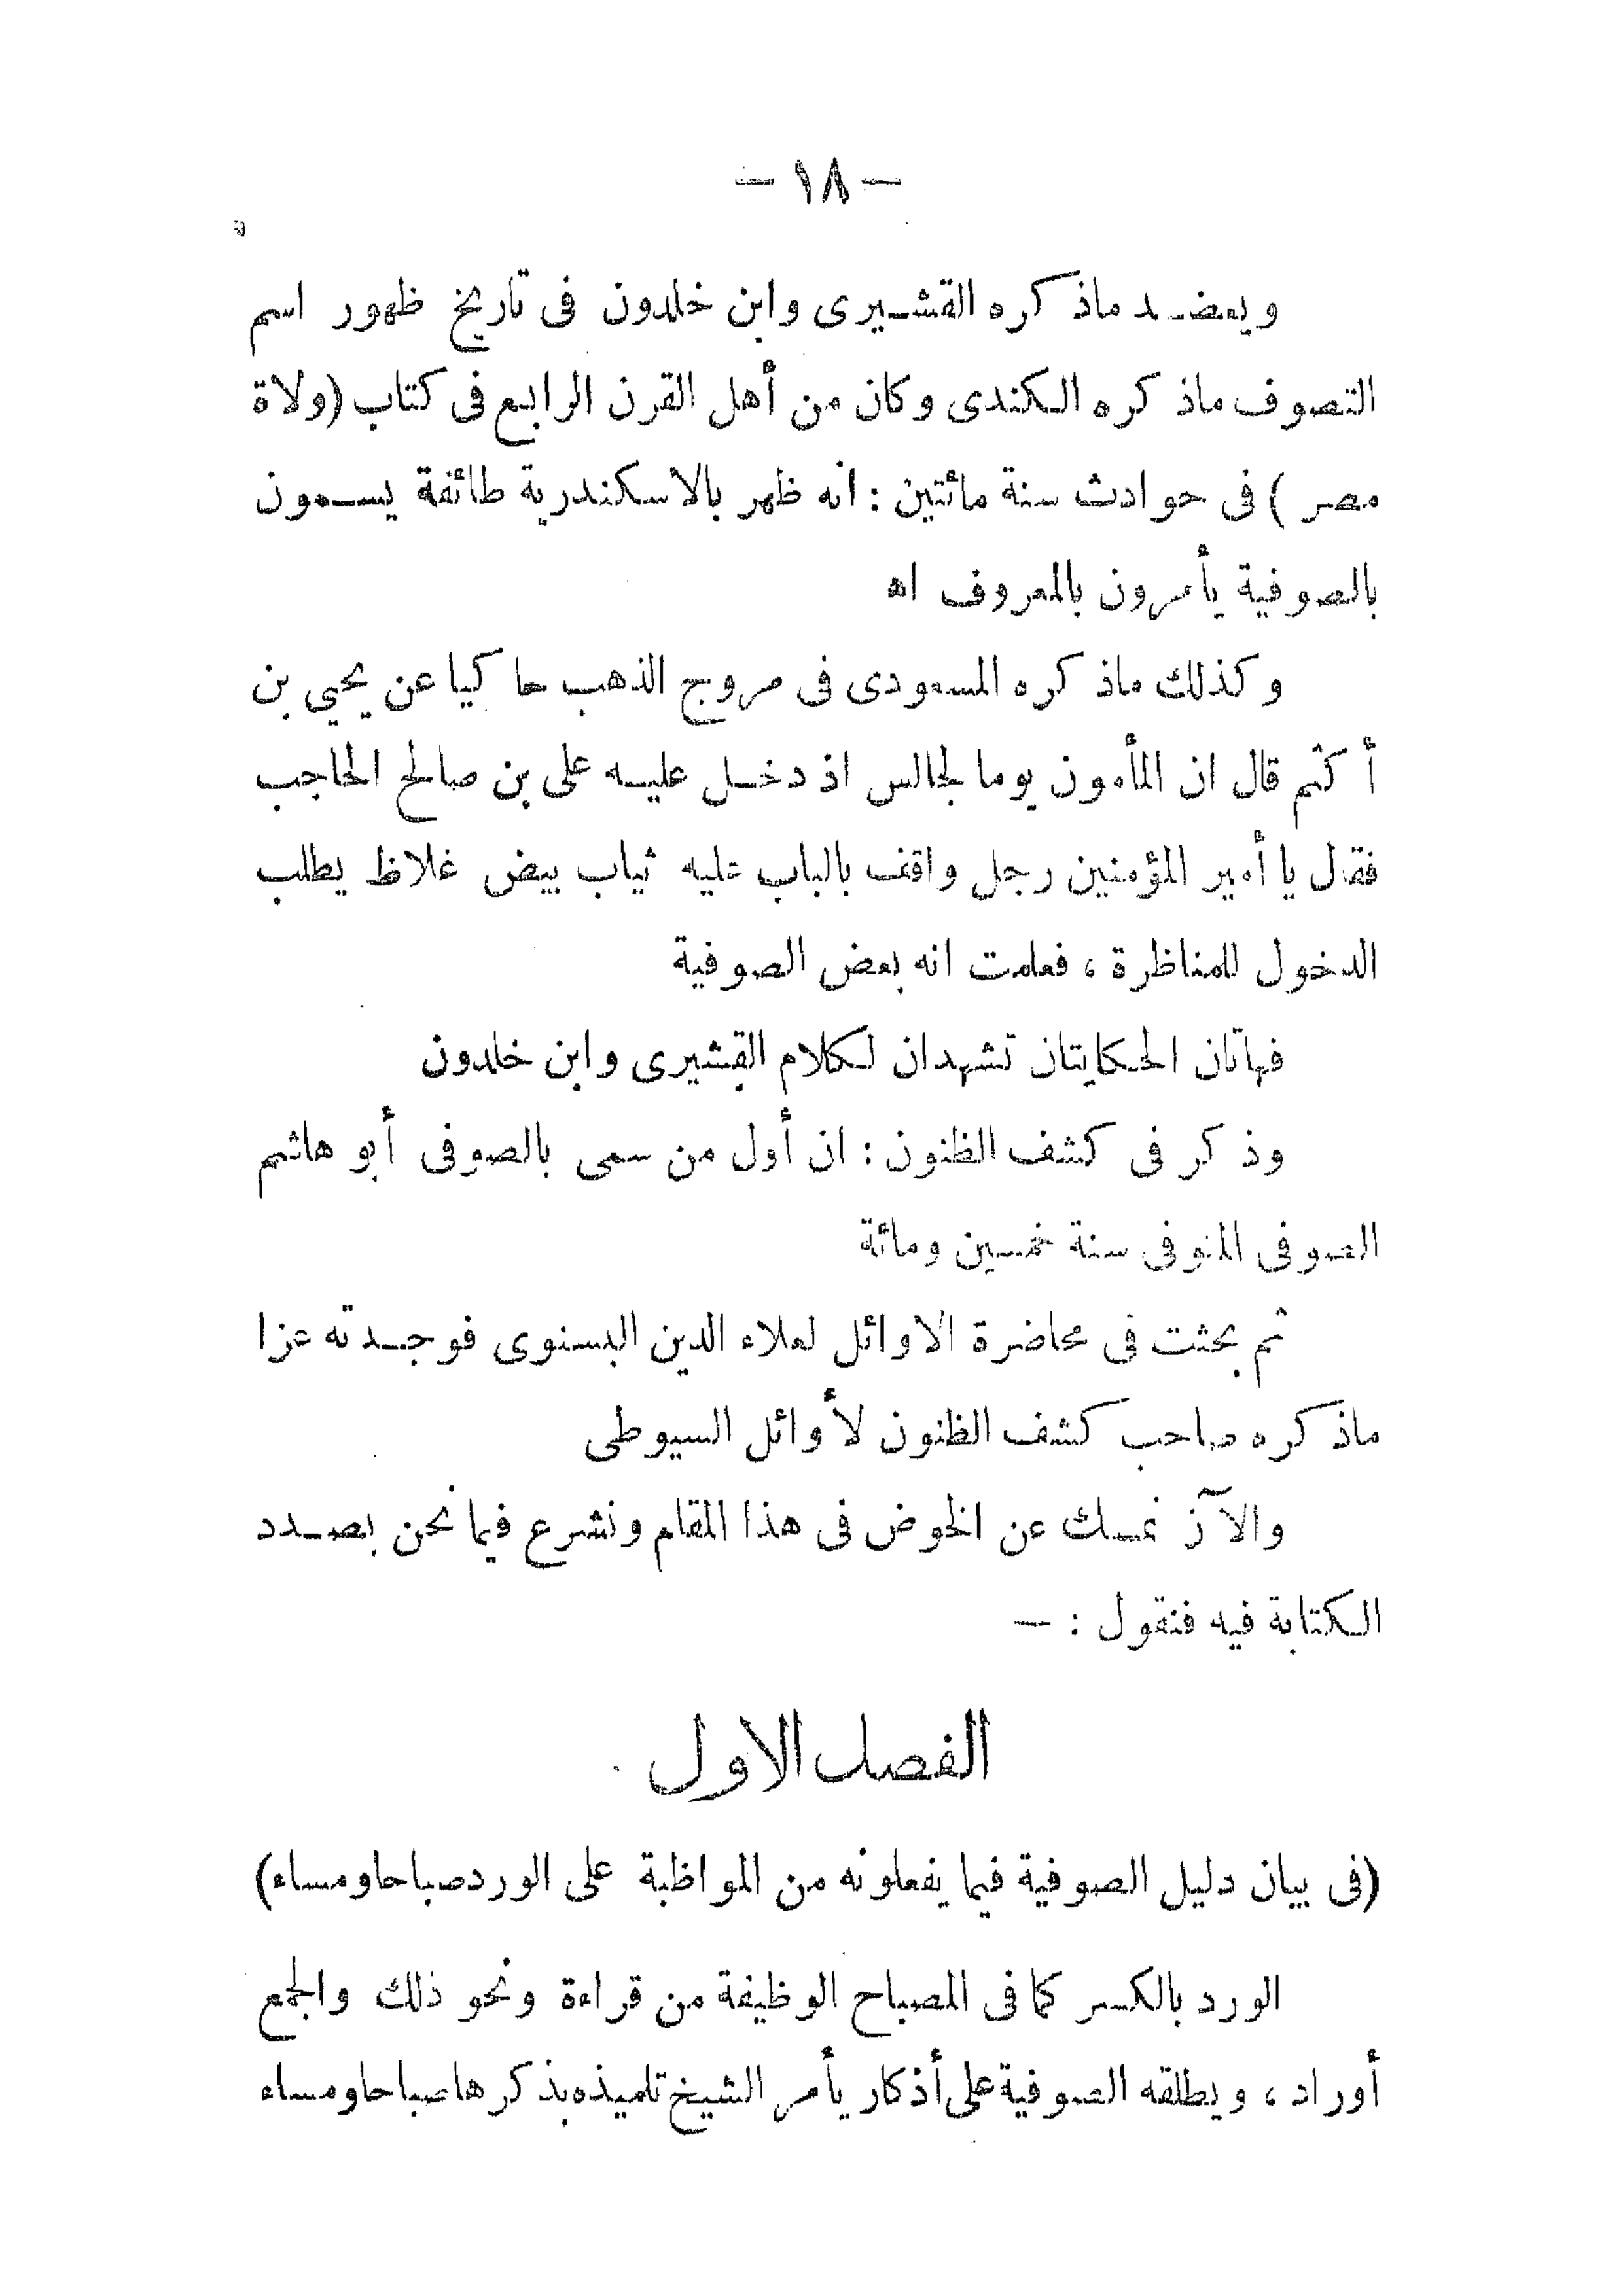 — ١٨ —
ويعضد ماذكره القشيرى وابن خلدون فى تاريخ ظهور اسم
التصوف ماذكره الكندى وكان من أهل القرن الرابع فى كتاب (ولاة
مصر ) فى حوادث سنة مائتين : انه ظهر بالاسكندرية طائفة يسمون
بالصوفية يأمرون بالمعروف اه
وكذلك ماذكره المسعودى فى مروج الذهب حاكيا عن يحيي بن
أكثم قال ان المأمون يوما لجالس اذ دخل عليه على بن صالح الحاجب
فقال يا أمير المؤمنين رجل واقف بالباب عليه ثياب بيض غلاظ يطلب
الدخول للمناظرة ، فعلمت انه بعض الصوفية
فهاتان الحكايتان تشهدان لكلام القشيرى وابن خلدون
وذكر فى كشف الظنون : ان أول من سمى بالصوفى أبو هاشم
الصوفى المتوفى سنة خمسين ومائة
ثم بحثت فى محاضرة الاوائل لعلاء الدين البسنوى فوجدته عزا
ماذكره صاحب كشف الظنون لأوائل السيوطى
والآن نمسك عن الخوض فى هذا المقام ونشرع فيما نحن بصدد
الكتابة فيه فنقول : —
الفصل الاول
(فى بيان دليل الصوفية فيما يفعلونه من المواظبة على الورد صباحا ومساء)
الورد بالكسر كما فى المصباح الوظيفة من قراءة ونحو ذلك والجمع
أوراد ، ويطلقه الصوفية على أذكار يأمر الشيخ تلميذه بذكرها صباحا ومساء